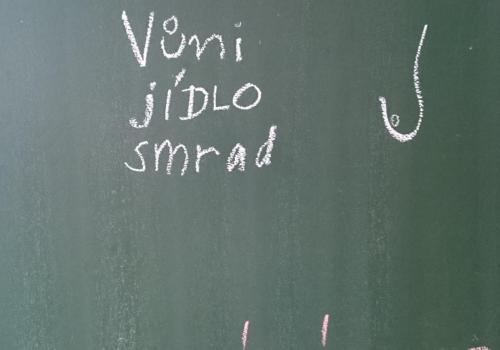 Vůni
jÍDLO
smrad